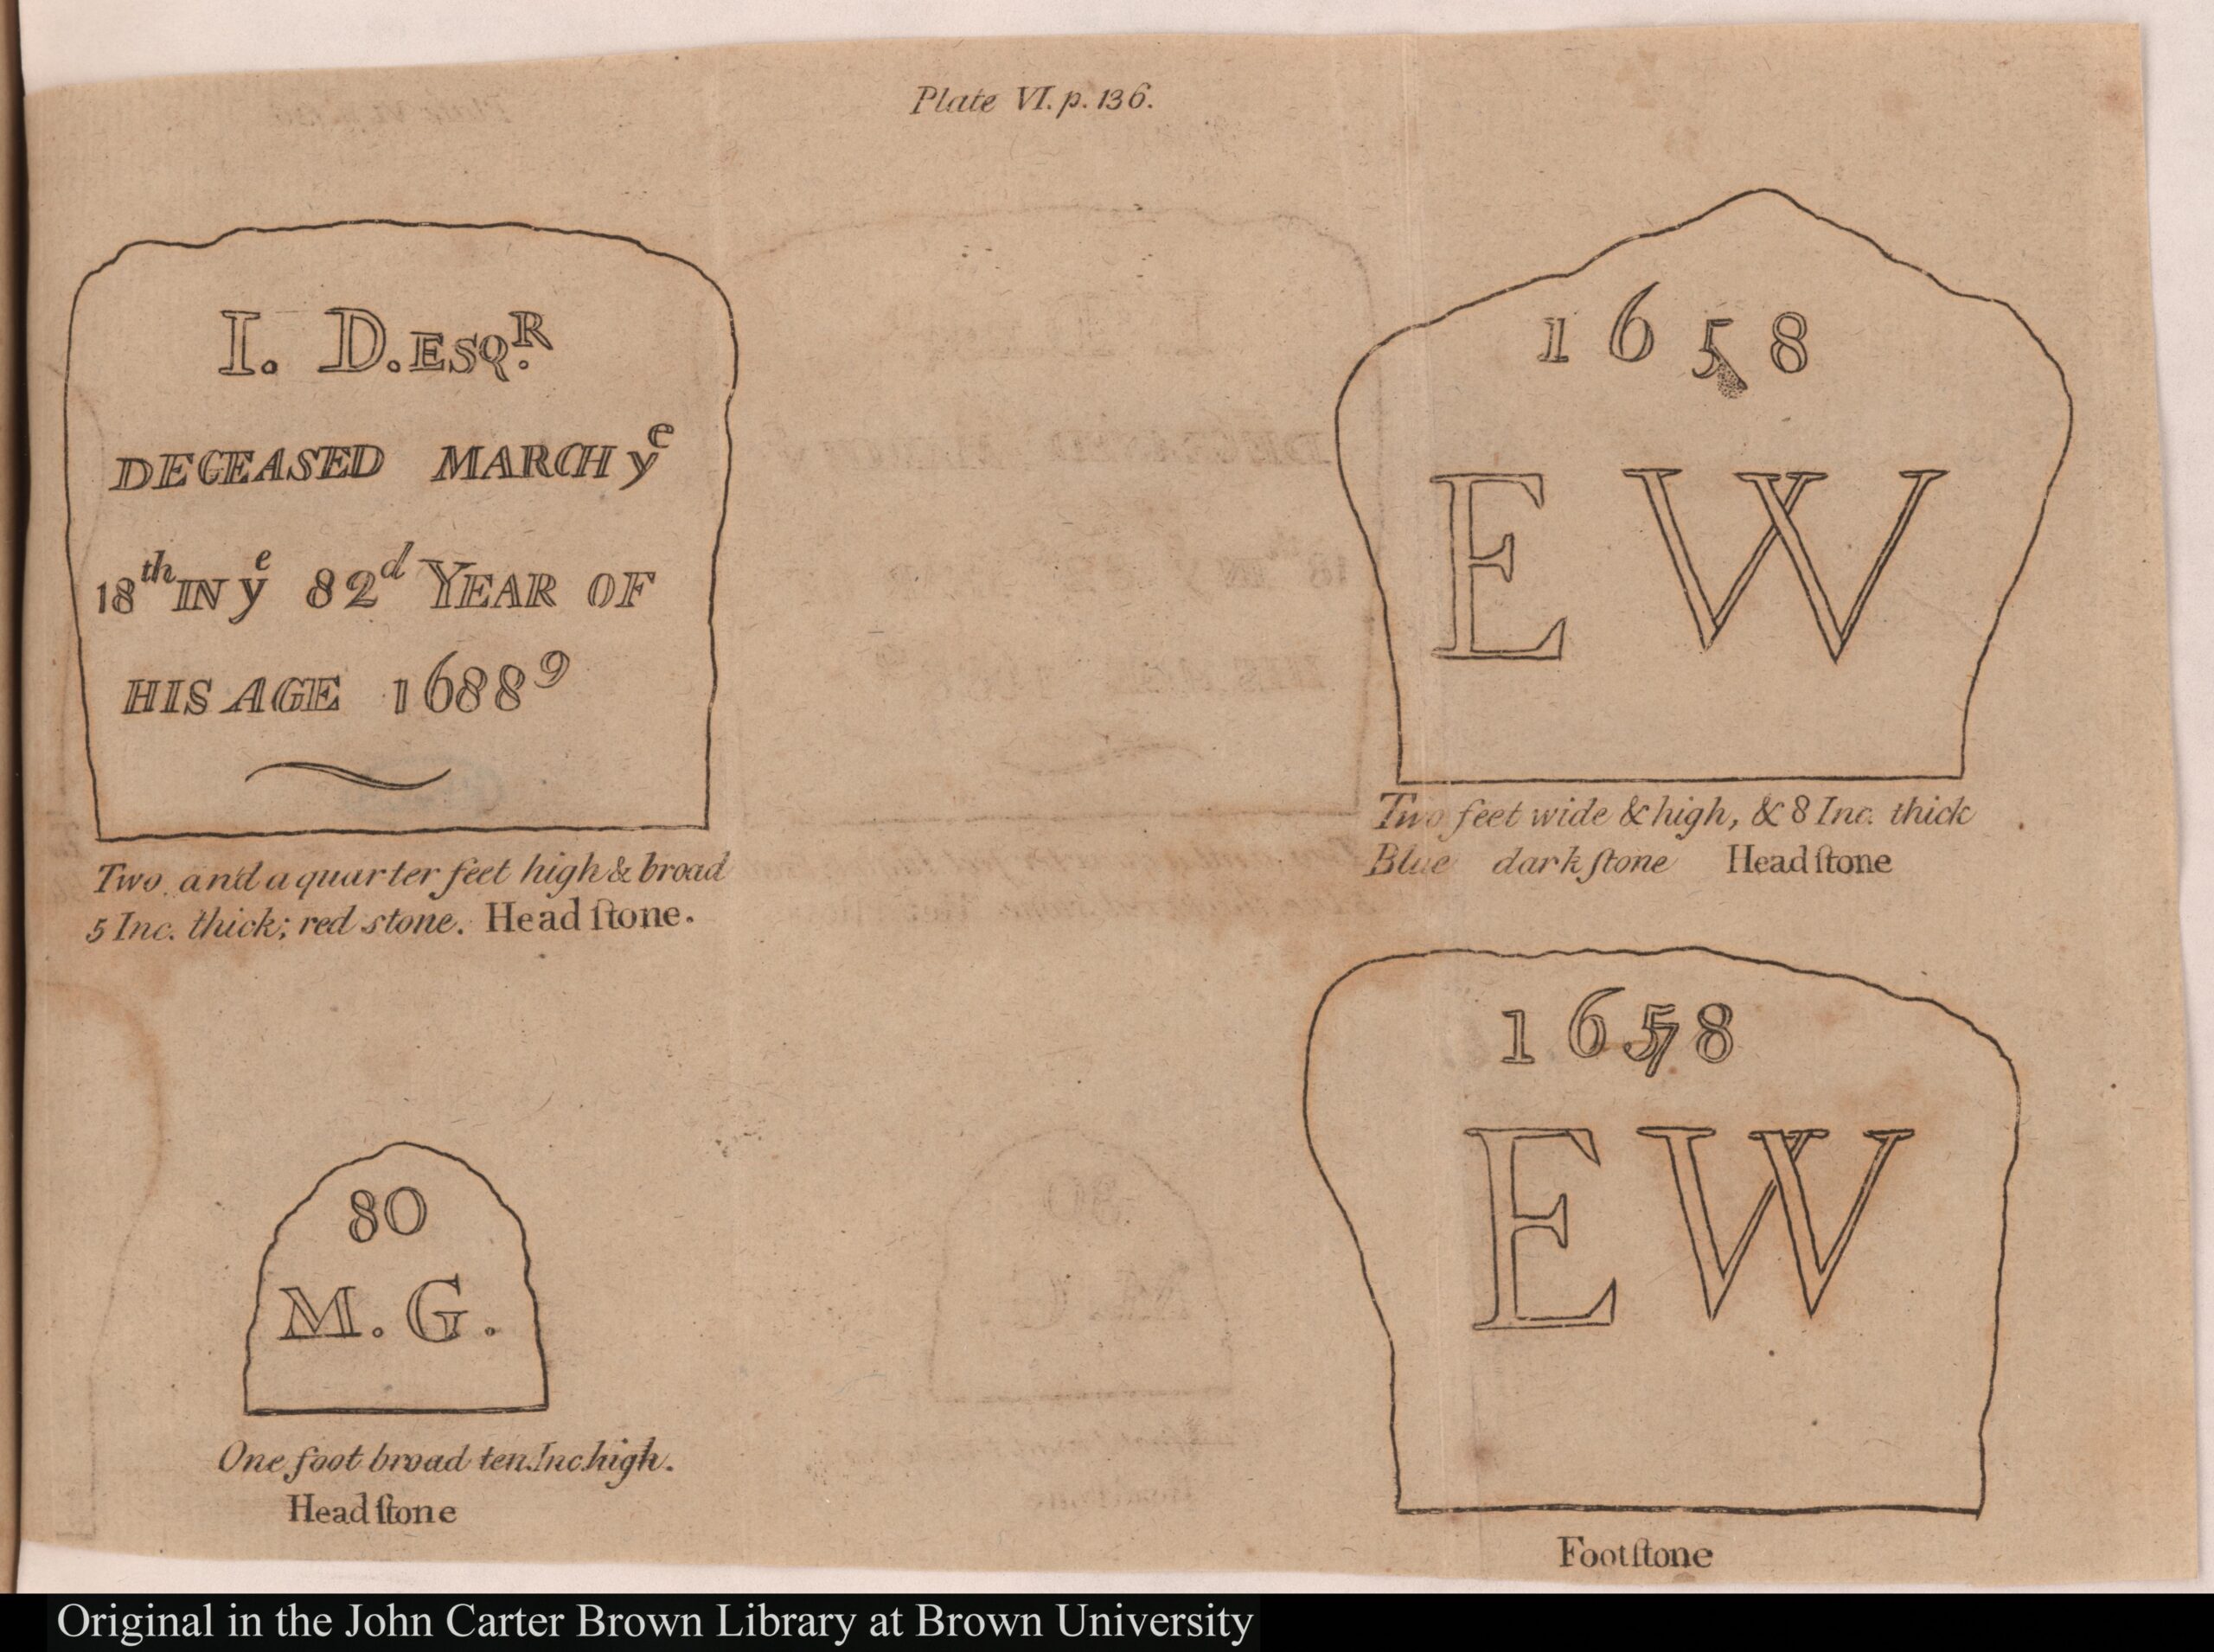 Plate VI. p. 136.
I. D. ESQ.R
DECEASED MARCH ye
18th IN ye 82d YEAR OF
HIS AGE 16889
Two and a quarter feet high & broad
5 Inc. thick; red stone. Head ſtone.
1658
E W
Two feet wide & high, & 8 Inc. thick
Blue dark ſtone Head ſtone
80
M. G.
One foot broad ten Inc high.
Head ſtone
16578
EW
Footſtone
Original in the John Carter Brown Library at Brown University